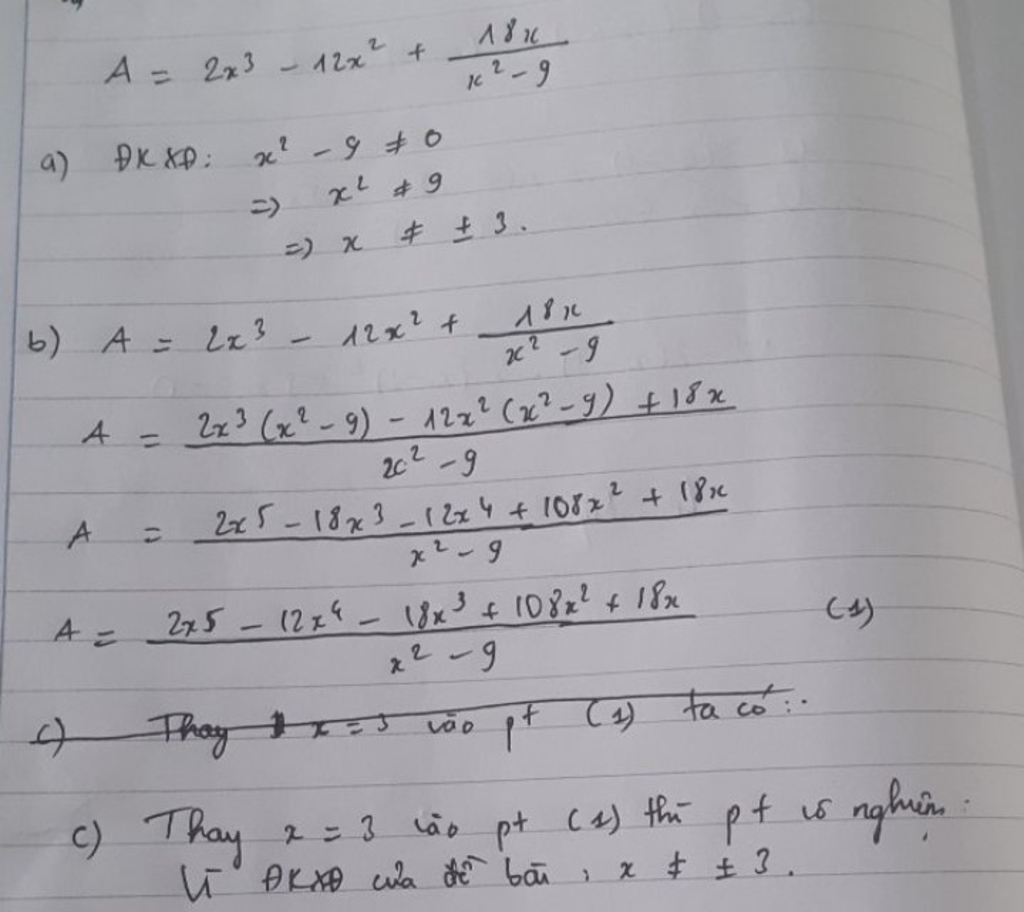 A = 2x³ - 12x² + 18x / x² - 9
a) ĐKXĐ: x² - 9 ≠ 0
=> x² ≠ 9
=> x ≠ ± 3.
b) A = 2x³ - 12x² + 18x / x² - 9
A = 2x³ (x² - 9) - 12x² (x² - 9) + 18x / x² - 9
A = 2x⁵ - 18x³ - 12x⁴ + 108x² + 18x / x² - 9
A = 2x⁵ - 12x⁴ - 18x³ + 108x² + 18x / x² - 9 (1)
c) Thay x = 3 vào pt (1) ta có:
c) Thay x = 3 vào pt (1) thì pt vô nghiệm.
Vì ĐKXĐ của đề bài, x ≠ ± 3.